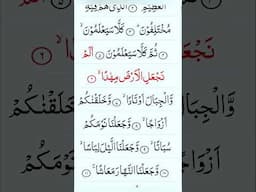 الْعَظِيْمِ ۙ الَّذِيْ هُمْ فِيْهِ
مُخْتَلِفُوْنَ ۗ كَلَّا سَيَعْلَمُوْنَ ۙ
ثُمَّ كَلَّا سَيَعْلَمُوْنَ اَلَمْ
نَجْعَلِ الْاَرْضَ مِهٰدًا ۙ
وَّالْجِبَالَ اَوْتَادًا ۖ وَّخَلَقْنٰكُمْ
اَزْوَاجًا ۙ وَّجَعَلْنَا نَوْمَكُمْ
سُبَاتًا ۙ وَّجَعَلْنَا الَّيْلَ لِبَاسًا ۙ
وَّجَعَلْنَا النَّهَارَ مَعَاشًا ۚ